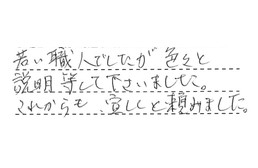 若い職人でしたが色々と
説明等して下さいました。
これからも宜しくと頼みました。